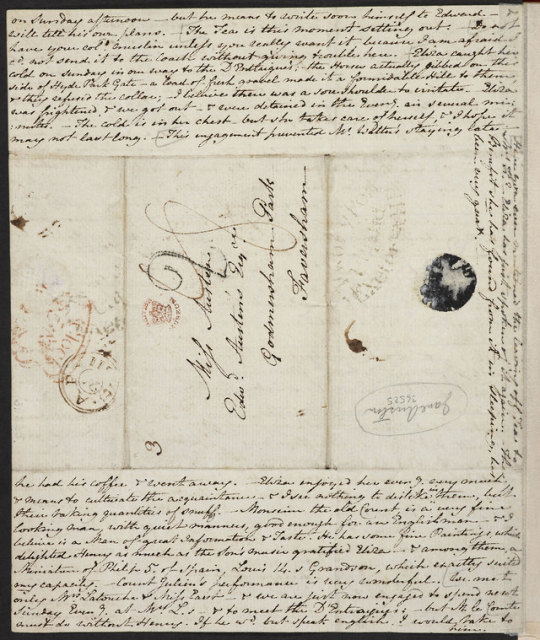 on Sunday afternoon - but he means to write soon himself to Edward &
will tell his own plans. - The Tea is this moment setting out. - Do not
have your cold muslin unless you really want it, because I am afraid I
cd not send it to the coach without giving trouble here. - Eliza caught her
cold on Sunday in our way to the D'Entraigues; - the Horses actually gibbed on this
side of Hyde Park Gate - a load of fresh gravel made it a formidable Hill to them,
& they refused the collar; - I believe there was a sore shoulder to irritate. - Eliza
was frightened, & we got out - & were detained in the Eveng air several mi-
-nutes. - The cold is in her chest - but she takes care of herself, & I hope it
may not last long. - This engagement prevented Mr Walter's staying late -
Miss Austen
Edwd Austen's Esqre
Godmersham Park
Faversham
3
Jane Austen
36525
he had his coffee & went away. - Eliza enjoyed her eveng very much
& means to cultivate the acquaintance - & I see nothing to dislike in them, but
their taking quantities of snuff. - Monsieur the old Count, is a very fine
looking man, with quiet manners, good enough for an Englishman - & I
believe is a Man of great Information & Taste. He has some fine Paintings, which
delighted Henry as much as the Son's music gratified Eliza - & among them, a
Miniature of Philip 5. of Spain, Louis 14.s Grandson, which exactly suited
my capacity. - Count Julien's performance is very wonderful. We met
only Mrs Latouche & Miss East - & we are just now engaged to spend next
Sunday Eveng at Mrs L.s - & to meet the D'Entraigues; - but M. le Comte
must do without Henry. If he wd but speak english, I would take to
him.